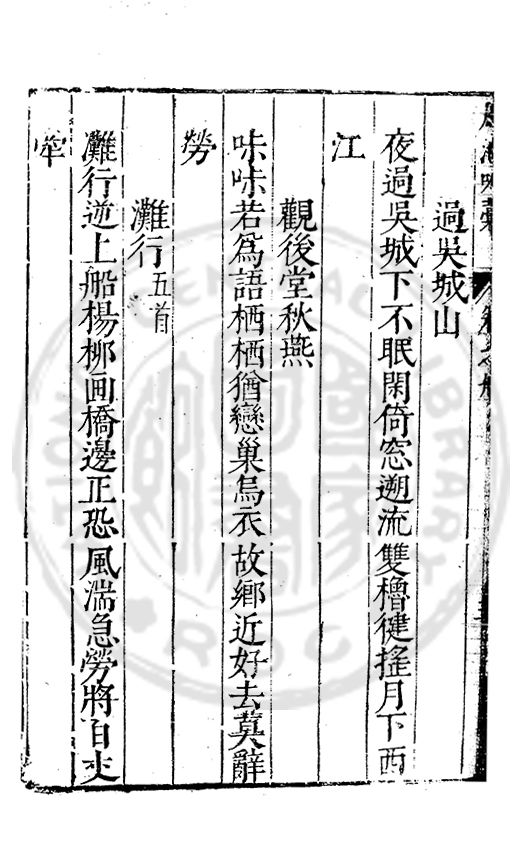 過吳城山
夜過吳城下不眠閑倚窓遡流雙櫓徤搖月下西
江
觀後堂秋燕
味味若為語栖栖猶戀巢烏衣故鄉近好去莫辭
勞
灘行五首
灘行逆上船楊栁画橋邊正恐風湍急勞將百丈
牽